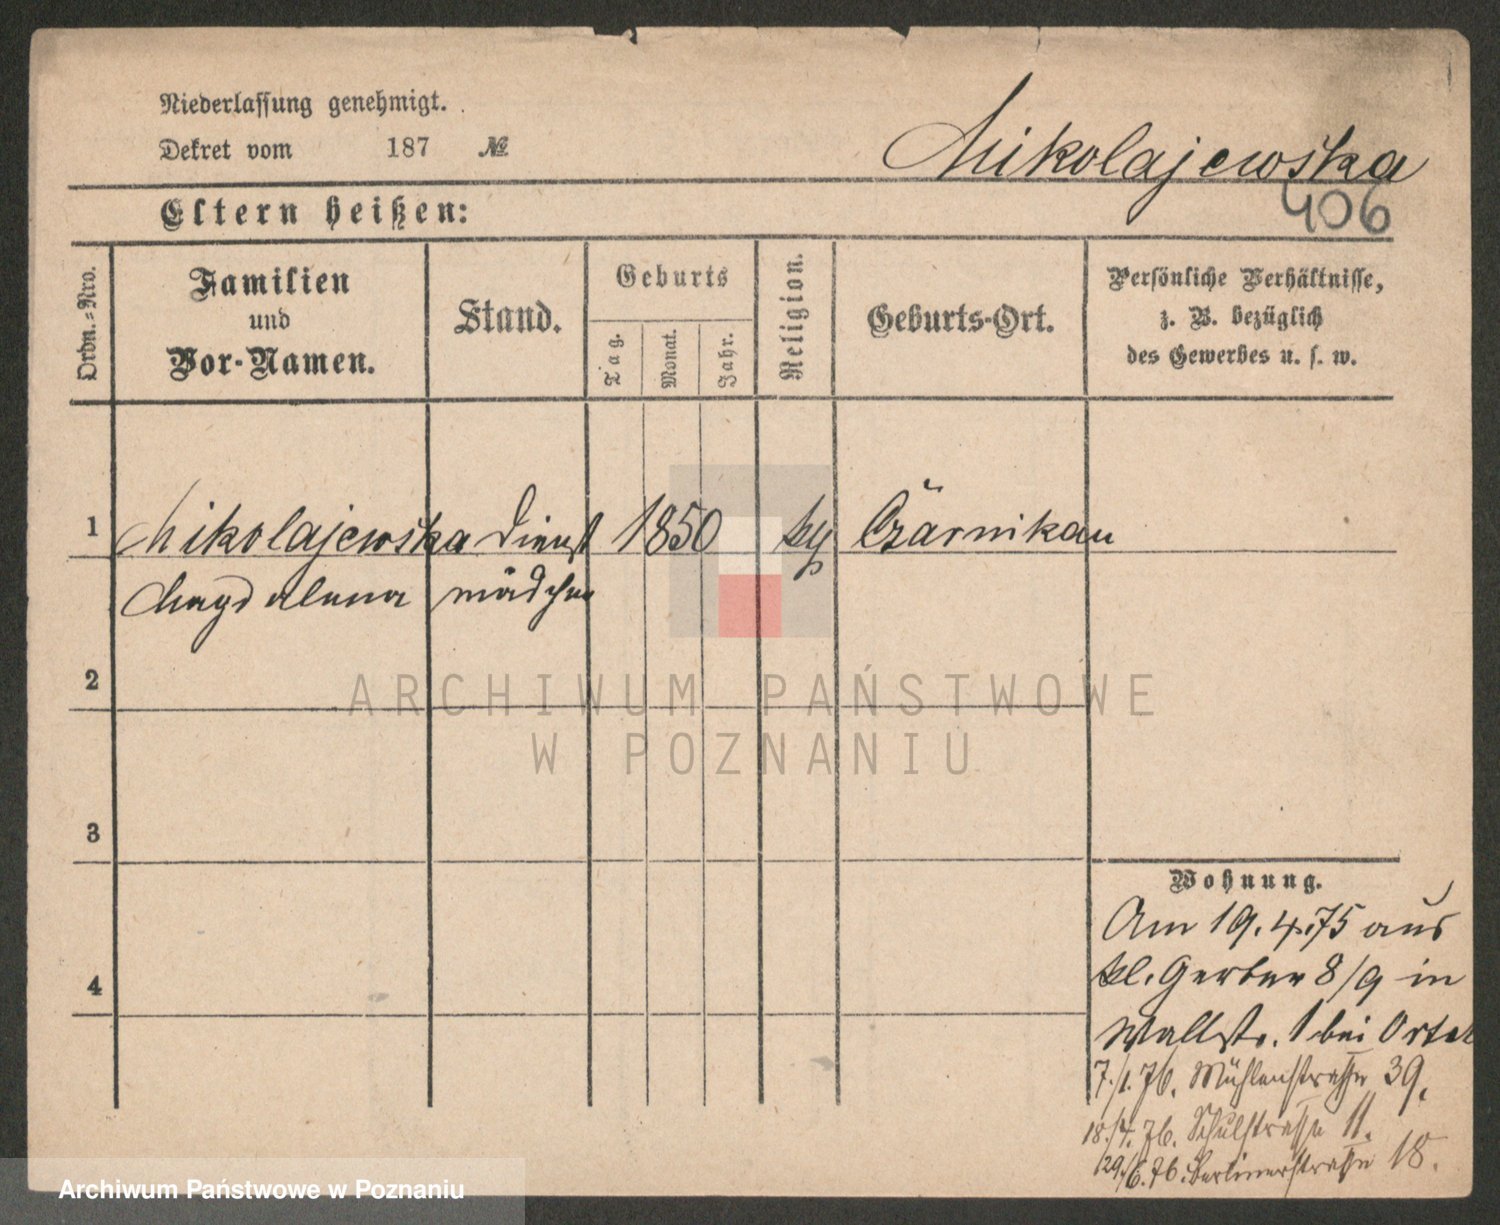 Niederlassung genehmigt.
Dekret vom 187 №
Mikolajewska
406
Eltern heißen:
Ordn.-Nro.
Familien und Vor-Namen.
Stand.
Geburts
Tag.
Monat.
Jahr.
Religion.
Geburts-Ort.
Persönliche Verhältnisse,
z. B. bezüglich
des Gewerbes u. s. w.
1 Mikolajewska Dienst 1850 Czarnikau
Magdalena mädchen
2
ARCHIWUM PAŃSTWOWE
W POZNANIU
3
Wohnung.
4
Am 19.4.75 aus
kl. Gerber 8/9 in
Wallstr. 1 bei
7./1. 76. Mühlenstrasse 39.
18./4. 76. Schulstrasse 11.
29./6. 76. Berlinerstrasse 18.
Archiwum Państwowe w Poznaniu